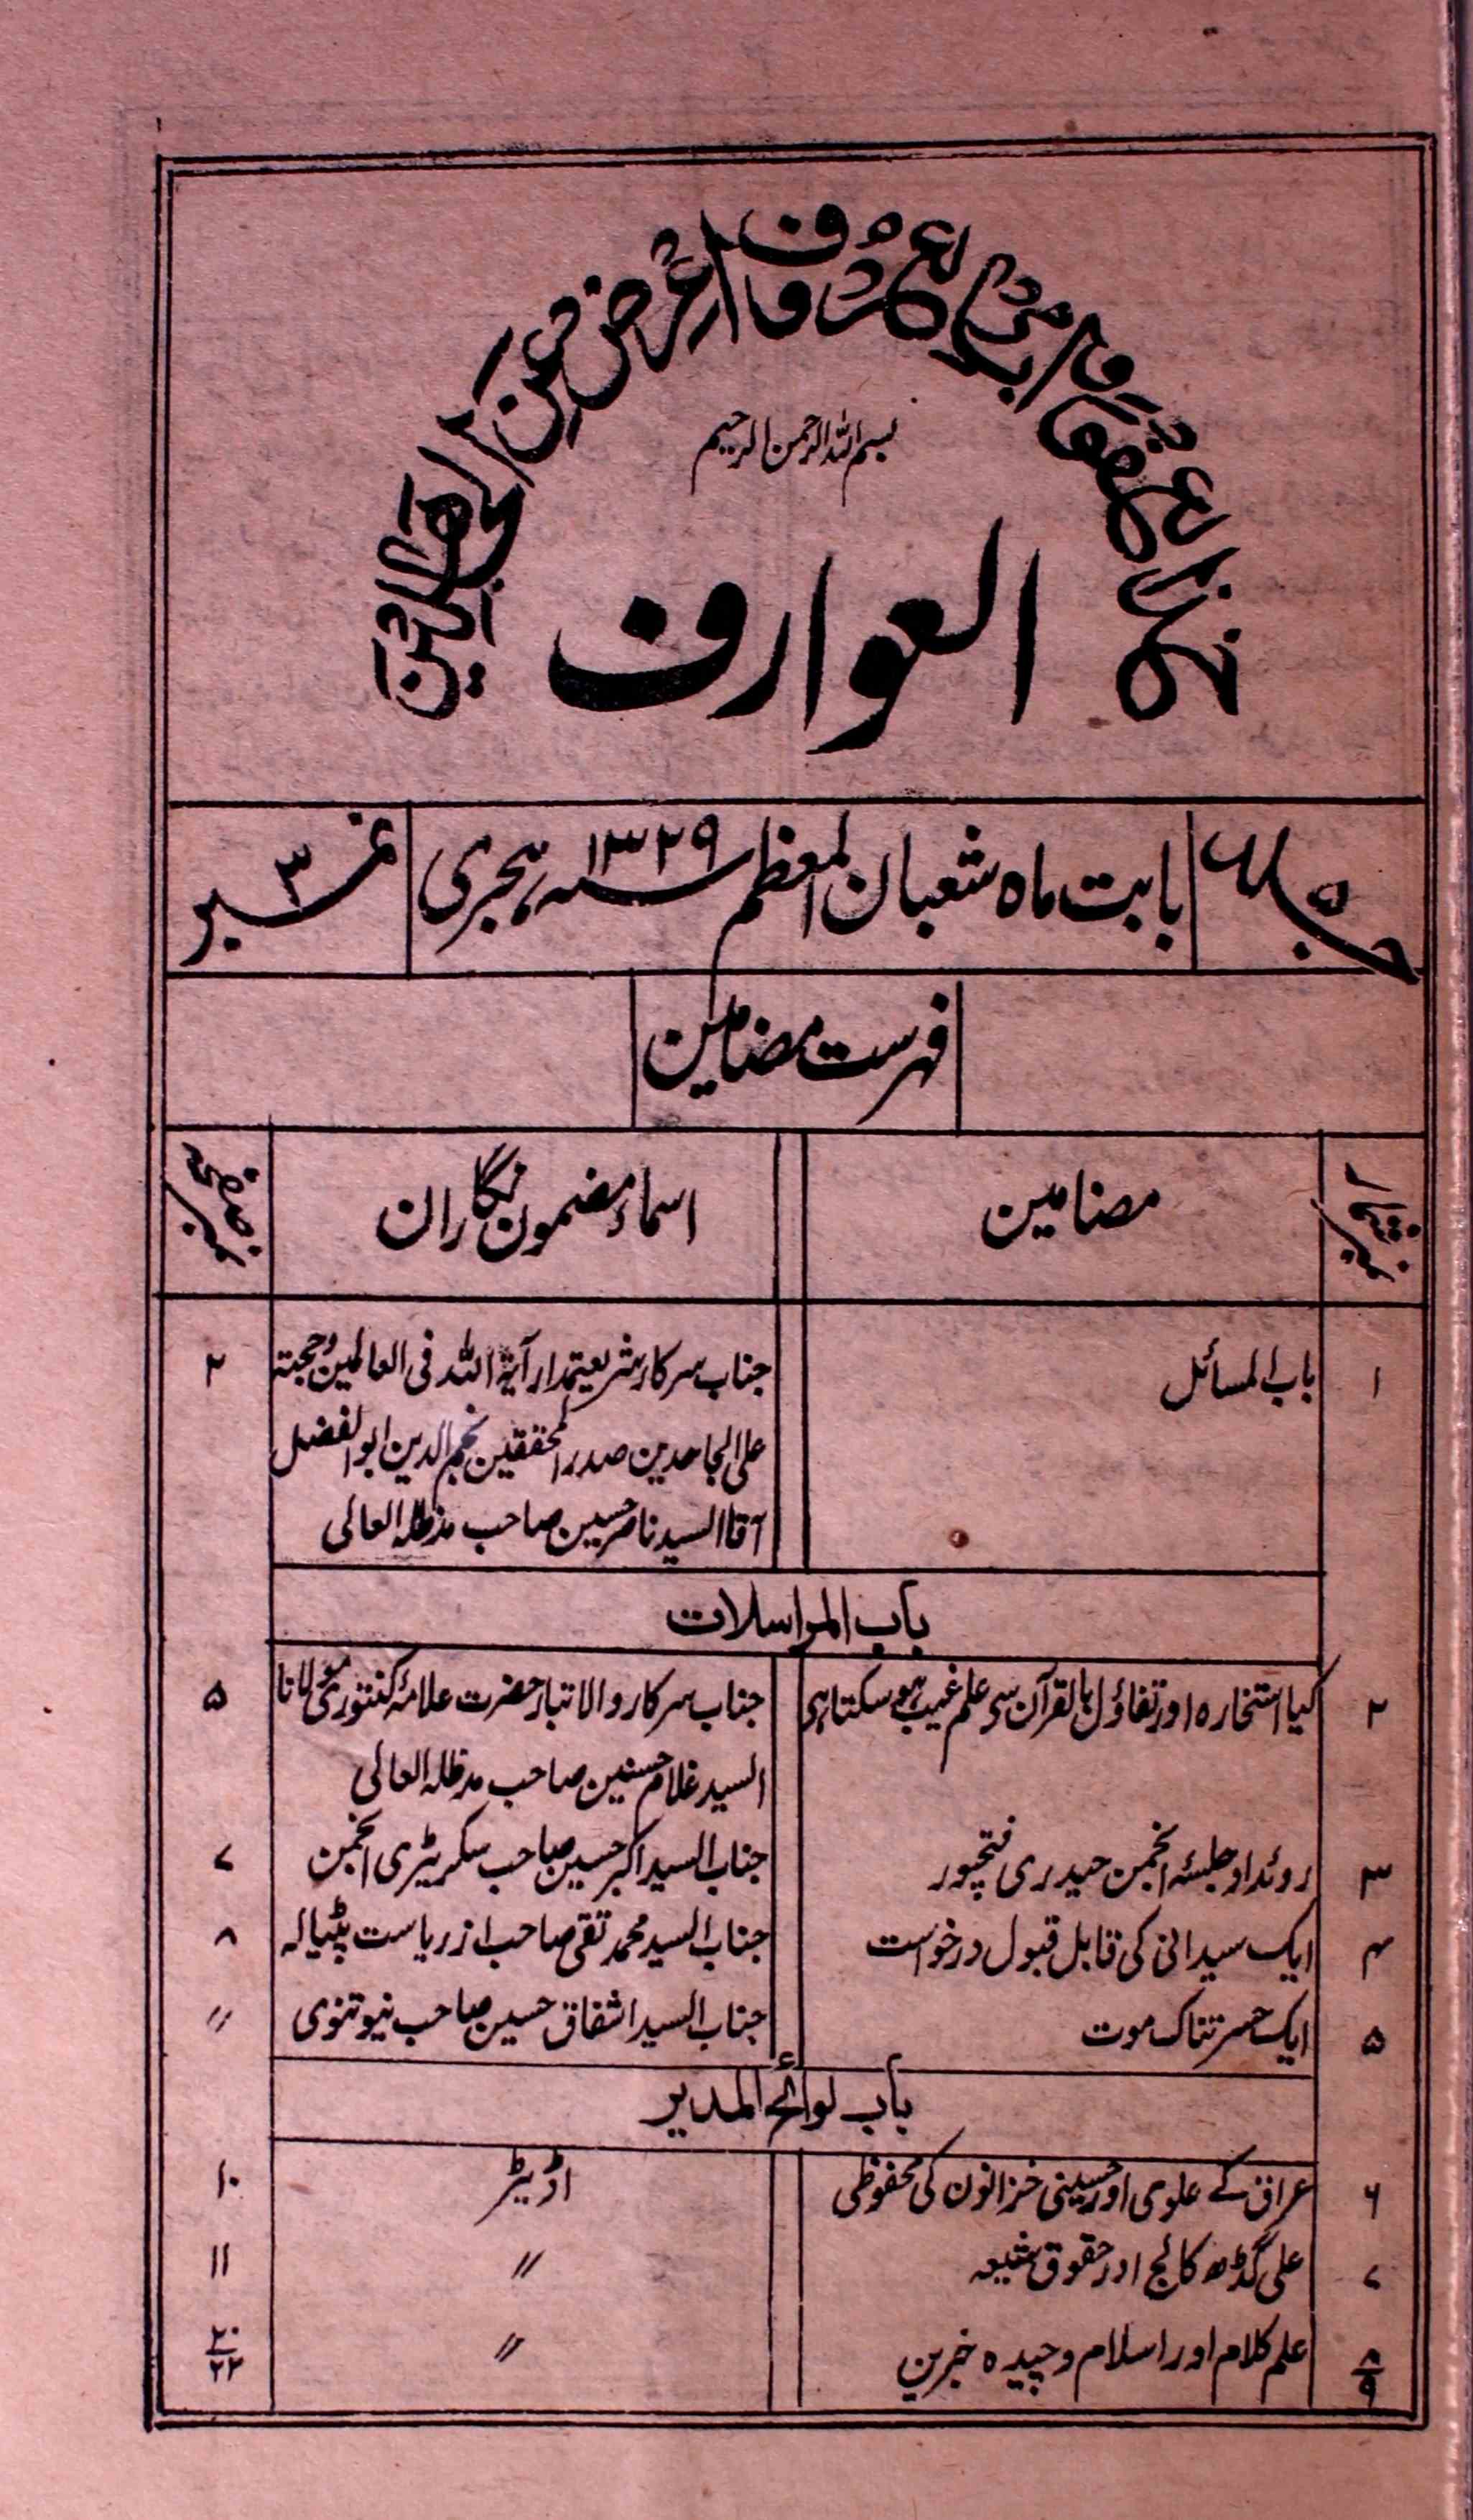 خذ العفو وامر بالعرف واعرض عن الجاهلين
بسم اللہ الرحمن الرحیم
العوارف
جلد ۵ بابت ماہ شعبان المعظم سنہ ۱۳۲۹ ہجری نمبر ۳
فہرست مضامین
نمبر شمار مضامین اسماء مضمون نگاران نمبر صفحہ
۱ باب المسائل جناب سرکار شریعتمدار آیۃ اللہ فی العالمین و حجۃ ۲
علی الجاحدین صدر المحققین نجم الدین ابو الفضل
آقا السید ناصر حسین صاحب مدظلہ العالی
باب المراسلات
۲ کیا استخارہ اور تفاؤل بالقرآن سے علم غیب ہو سکتا ہے جناب سرکار والاتبار حضرت علامۂ کنتوری مولانا ۵
السید غلام حسنین صاحب مدظلہ العالی
۳ روئداد جلسۂ انجمن حیدری فتحپور جناب السید اکبر حسین صاحب سکریٹری انجمن ۷
۴ ایک سیدانی کی قابل قبول درخواست جناب السید محمد تقی صاحب از ریاست پٹیالہ ۸
۵ ایک حسرتناک موت جناب السید اشفاق حسین صاحب نیوتنوی 〃
باب لوائح المدیر
۶ عراق کے علوی اور حسینی خزانون کی محفوظی اڈیٹر ۱۰
۷ علی گڈھ کالج اور حقوق شیعہ 〃 ۱۱
۸/۹ علم کلام اور اسلام و چیدہ خبرین 〃 ۲۰/۲۲